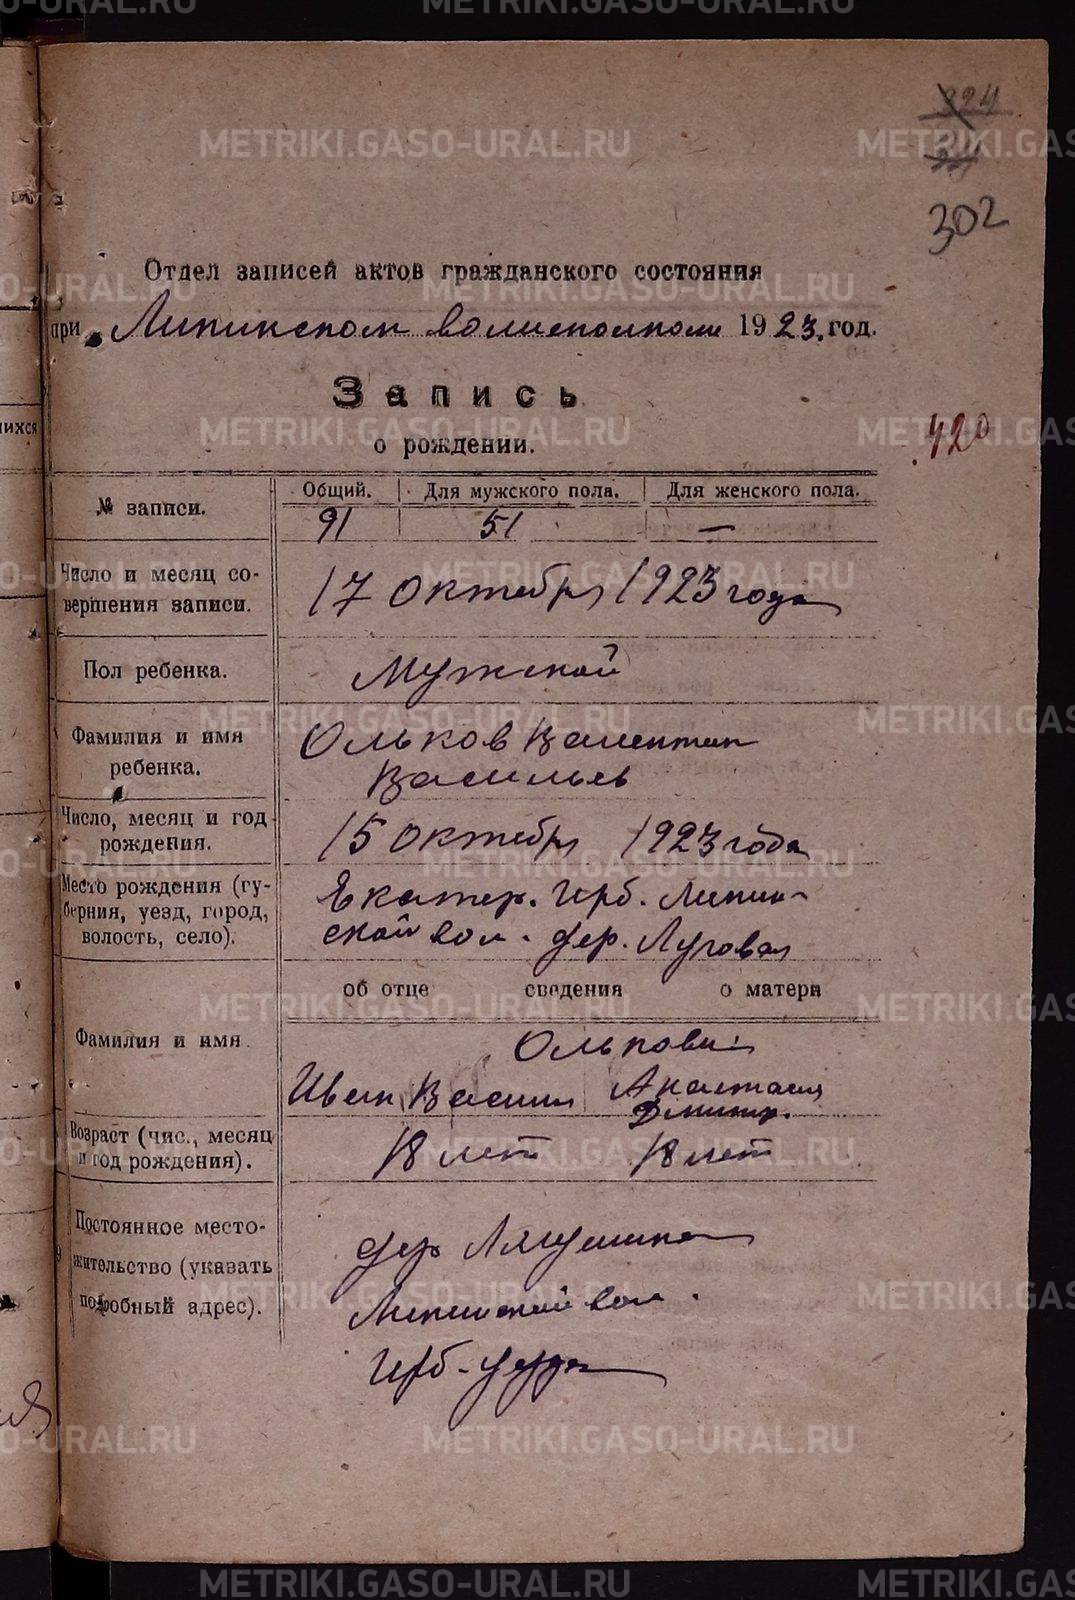 METRIKI.GASO-URAL.RU
302
Отдел записей актов гражданского состояния
при Липинском волисполкоме 1923 год.
Запись
о рождении.
420
№ записи.
Общий. Для мужского пола. Для женского пола.
91 51 —
Число и месяц со-
вершения записи.
17 октября 1923 года
Пол ребенка.
Мужской
Фамилия и имя
ребенка.
Ольков Валентин
Васильев
Число, месяц и год
рождения.
15 октября 1923 года
Место рождения (гу-
берния, уезд, город,
волость, село).
Екатер. Ирб. Липин-
ской вол. дер. Луговая
об отце сведения о матери
Фамилия и имя
Ольковы:
Иван Васил Анастасия
Дмитр.
Возраст (чис., месяц
и год рождения).
18 лет 18 лет
Постоянное место-
жительство (указать
подробный адрес).
дер
Липинской вол.
Ирб. уезда